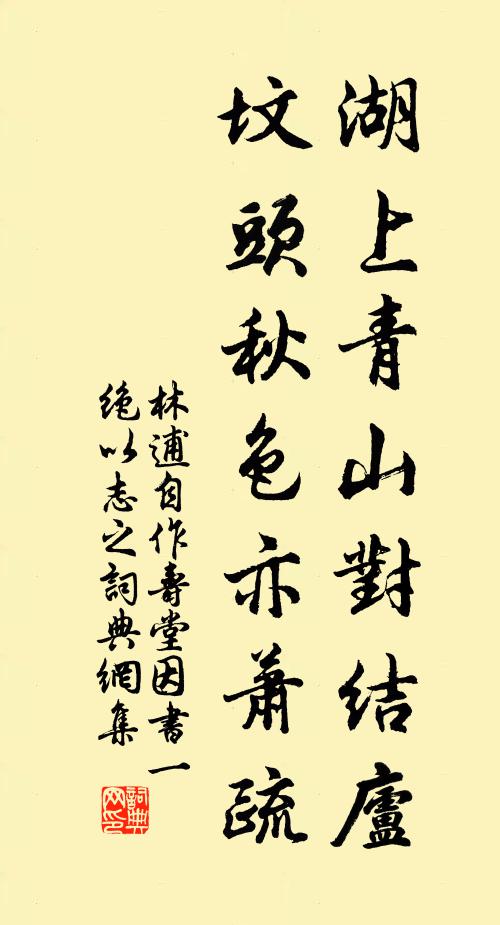 湖上青山對結廬
坟頭秋色亦蕭疏
林逋自作壽堂因書一
絶以志之詞典網集
詞典
网印